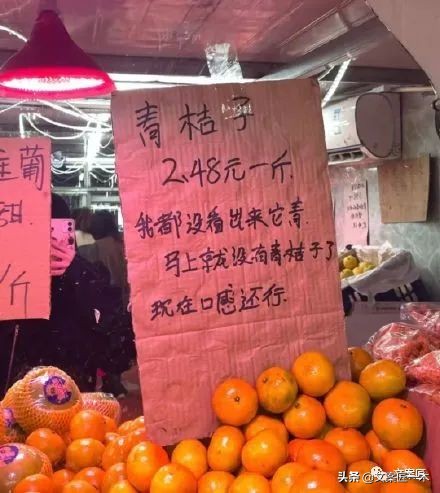 青桔子
2.48元一斤
我都没看出来它青.
马上就没有青桔子了
现在口感还行.
葡
甜
/斤
头条